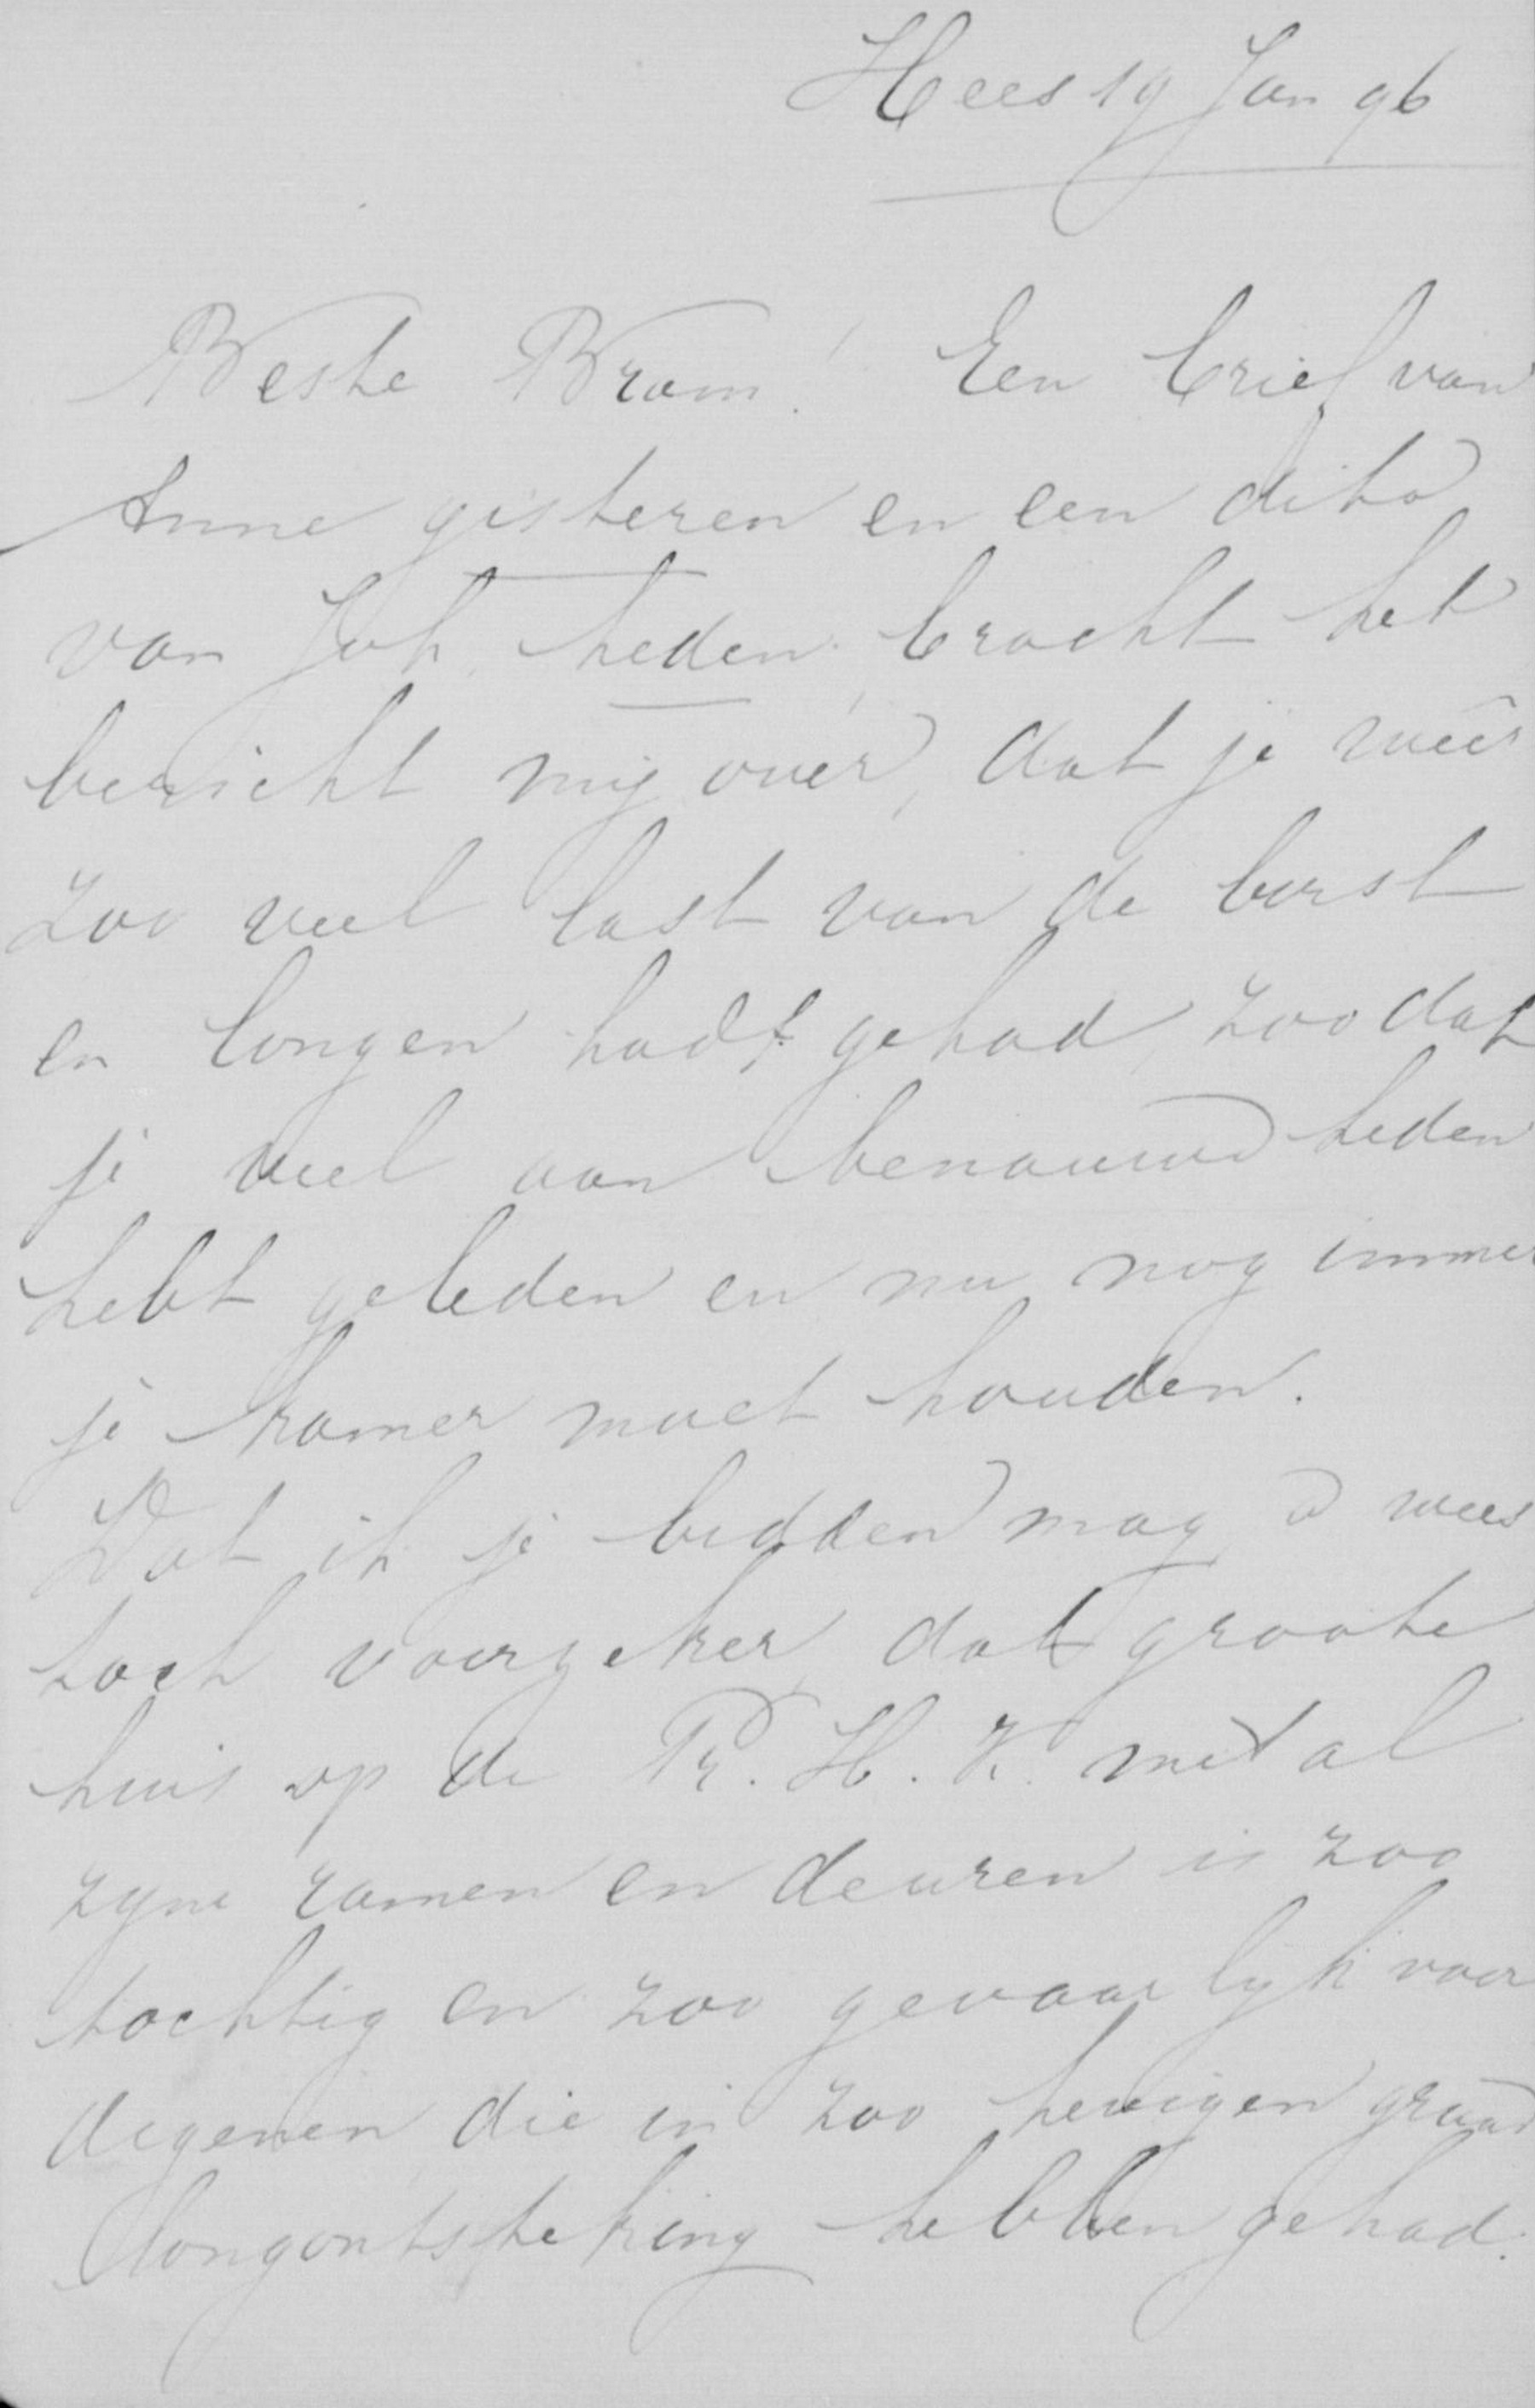 Hees 19 Jan 96
Beste Bram! Een brief van
Anne gisteren en een dito
van Joh. heden, bracht het
bericht mij over, dat je weêr
zoo veel last van de borst
en longen hadt gehad, zoodat
je veel aan benauwdheden
hebt geleden en nu nog immer
je kamer moet houden.
Dat ik je bidden mag ô wees
toch voorzeker, dat groote
huis op de Pr. H. K. met al
zyne ramen en deuren is zoo
tochtig en zoo gevaarlyk voor
degenen die in zoo hevigen graad
longontsteking hebben gehad.